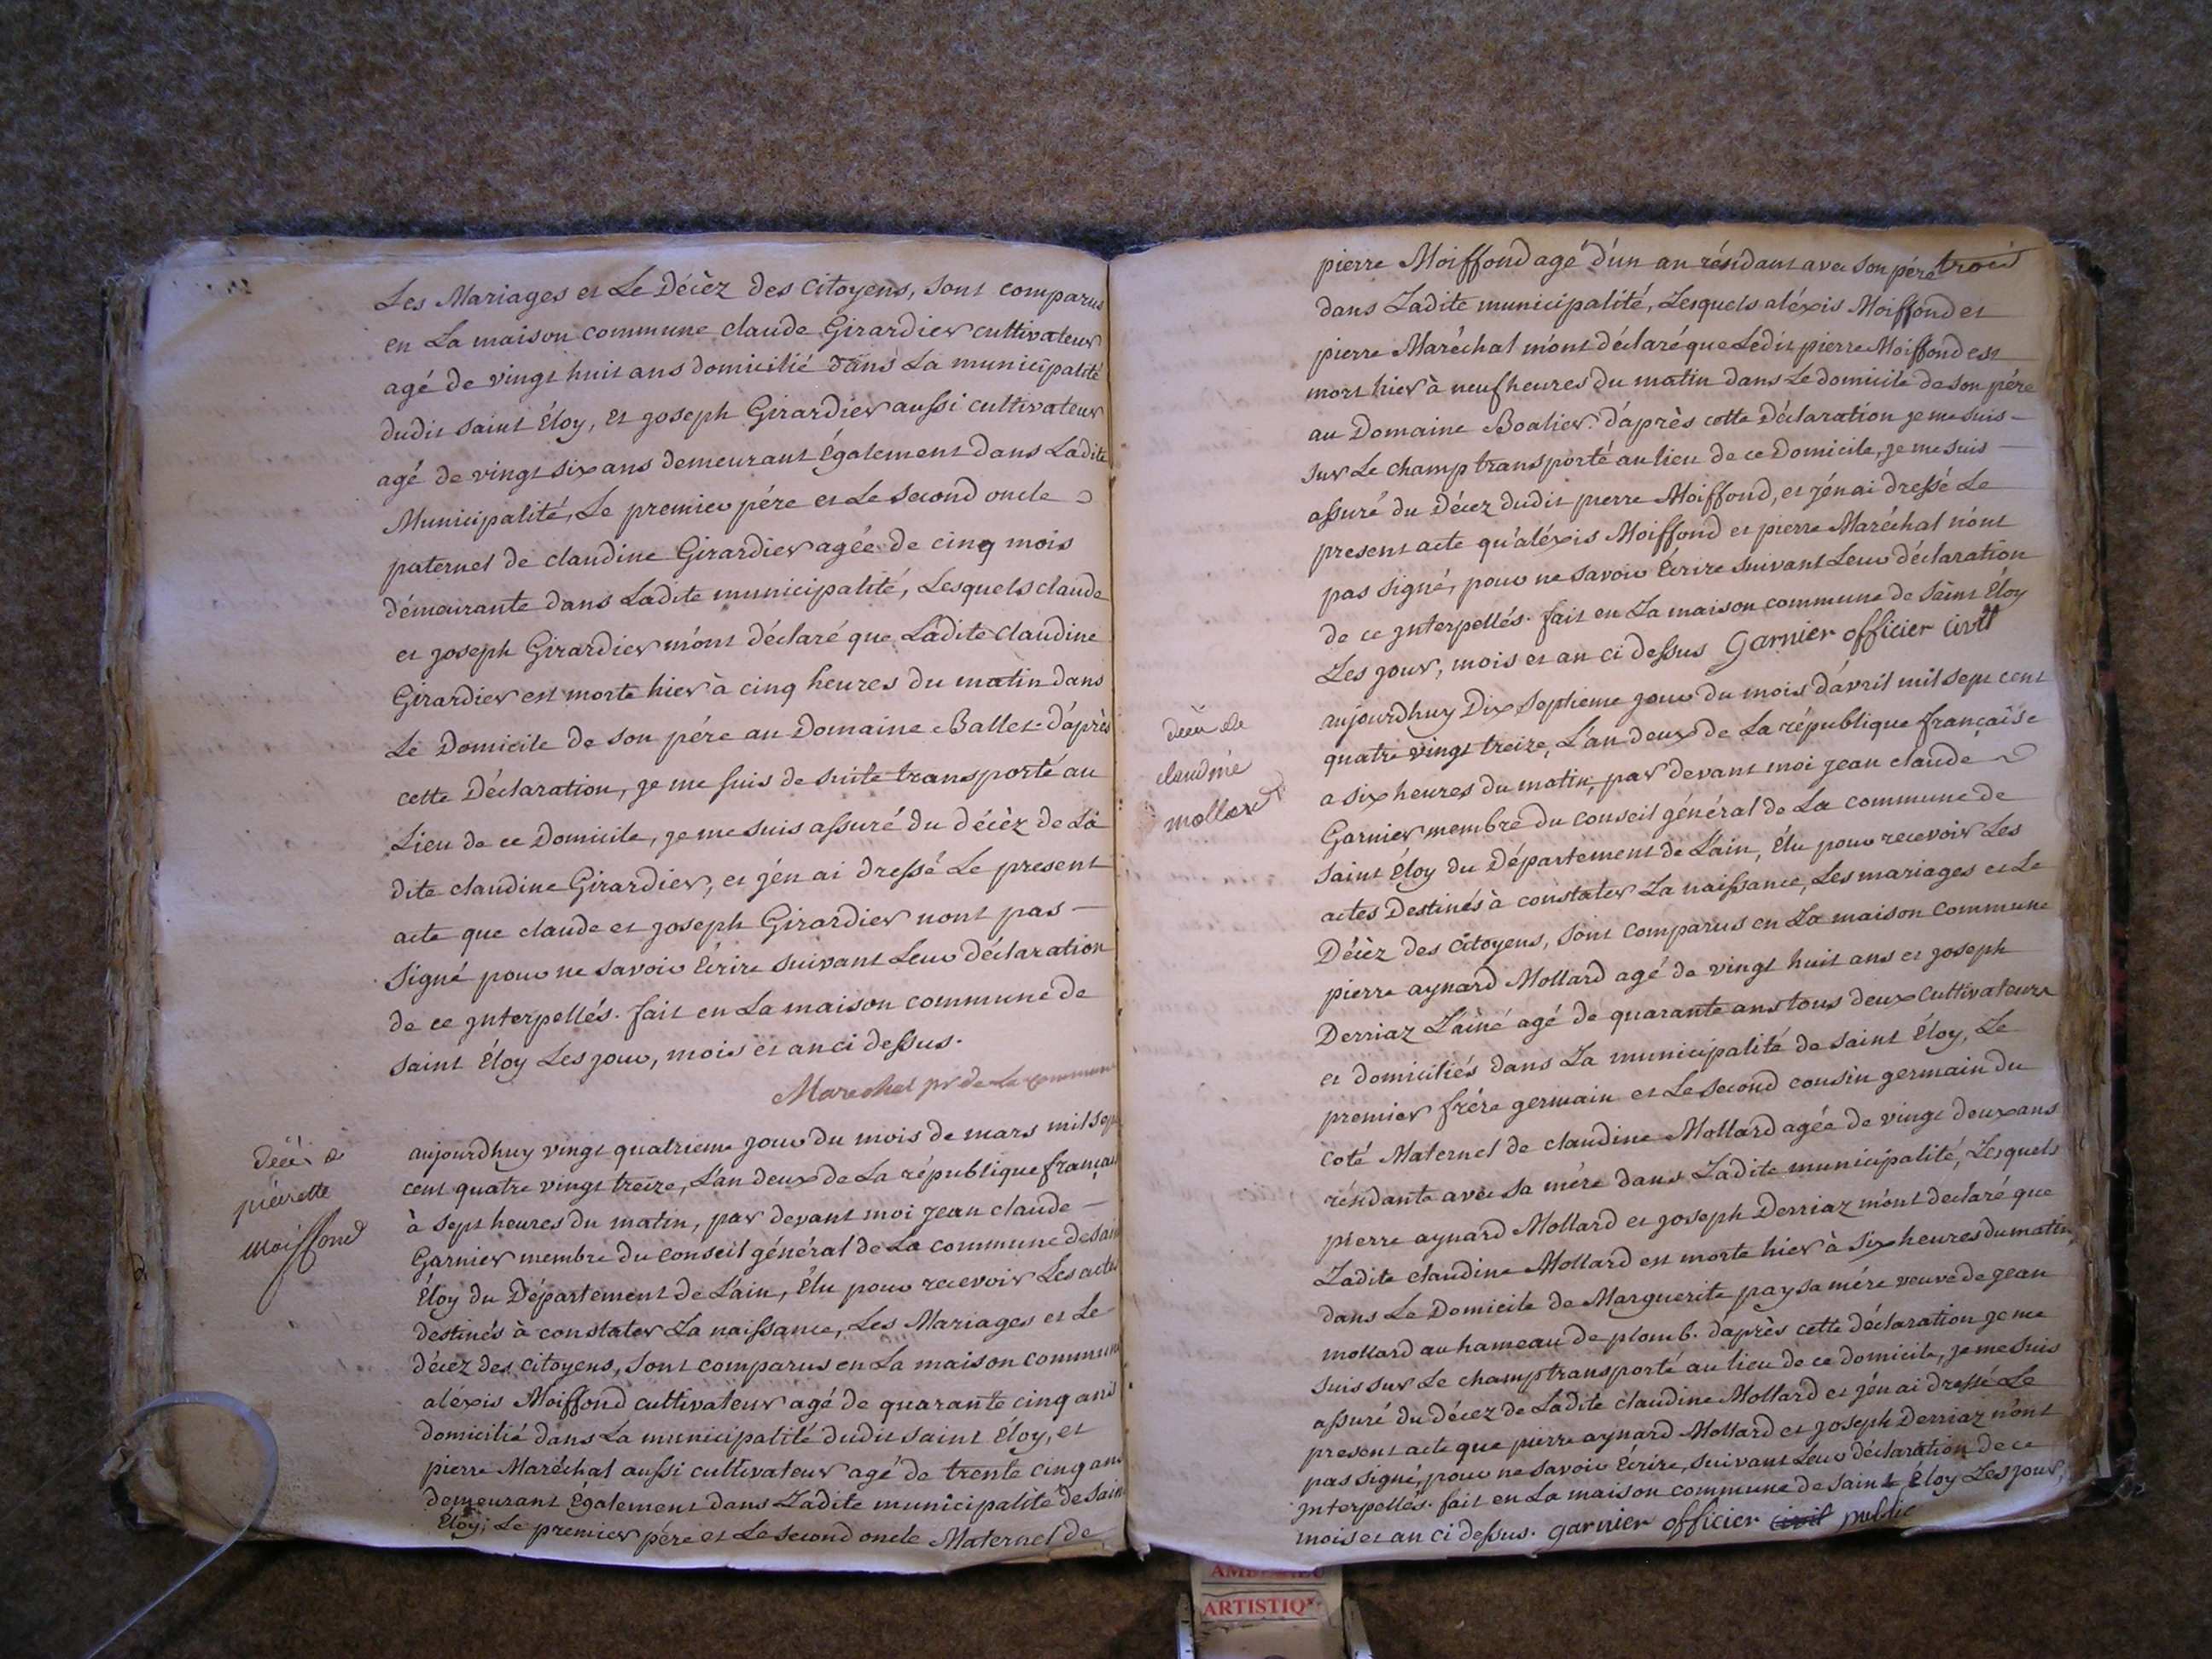 Les Mariages et Le Décèz des Citoyens, sont comparus
en La maison commune claude Girardier cultivateur
agé de vingt huit ans domicilié dans La municipalité
dudit saint Éloy, et joseph Girardier aussi cultivateur
agé de vingt six ans demeurant Également dans Ladite
Municipalité, Le premier pére et Le second oncle
paternel de claudine Girardier agée de cinq mois
démeurante dans Ladite municipalité, Lesquels claude
et joseph Girardier m'ont déclaré que Ladite claudine
Girardier est morte hier à cinq heures du matin dans
Le Domicile de son pére au Domaine Ballet. d'après
cette Déclaration, je me suis de suite transporté au
Lieu de ce Domicile, je me suis assuré du décèz de La
dite claudine Girardier, et j'én ai dressé Le present
acte que claude et joseph Girardier nont pas —
signé pour ne savoir Écrire suivant Leur déclaration
de ce jnterpellés. fait en La maison commune de
saint Éloy Les jour, mois et an ci dessus.
Marechal pr de La commune
décès de
pierrette
Moiffond
aujourdhuy vingt quatrieme jour du mois de mars mil sept
cent quatre vingt treize, L'an deux de La république français
à sept heures du matin, par devant moi jean claude —
Garnier membre du conseil général de La commune de sain
Éloy du Département de L'ain, Élu pour recevoir Les actes
destinés à constater La naissance, Les Mariages et Le
décez des citoyens, sont comparus en La maison commune
aléxis Moiffond cultivateur agé de quarante cinq ans
domicilié dans La municipalité dudit saint Éloy, et
pierre Maréchal aussi cultivateur agé de trente cinq ans
demeurant Également dans Ladite municipalité de Sain
Éloy; Le premier pére et Le second oncle Maternel de
pierre Moiffond agé d'ún an résidant avec son pére trois
dans Ladite municipalité, Lesquels aléxis Moiffond et
pierre Maréchal m'ont déclaré que Lédit pierre Moiffond est
mort hier à neuf heures du matin dans Le domicile de son pére
au Domaine Boalier. d'après cette Déclaration je me suis —
sur Le champ transporté au lieu de ce Domicile, je me suis —
assuré du Décez dudit pierre Moiffond, et j'én ai dressé Le
present acte qu'aléxis Moiffond et pierre Maréchal n'ont
pas signé, pour ne savoir Écrire suivant Leur déclaration
de ce jnterpellés. fait en La maison commune de Saint Éloy
Les jour, mois et an ci dessus Garnier officier civil
décès de
claudine
mollard
aujourdhuy Dix septieme jour du mois d'avril mil sept cent
quatre vingt treize, L'an deux de La république française
a six heures du matin, par devant moi jean claude
Garnier membre du conseil général de La commune de
saint Éloy du Département de L'ain, Élu pour recevoir Les
actes Destinés à constater La naissance, Les mariages et Le
Décèz des Citoyens, sont comparus en La maison commune
pierre aynard Mollard agé de vingt huit ans et joseph
Derriaz L'ainé agé de quarante ans tous deux cultivateurs
et domiciliés dans La municipalité de saint Éloy, Le
premier frére germain et Le second cousin germain du
coté Maternel de claudine Mollard agée de vingt deux ans
résidante avec sa mére dans Ladite municipalité, Lesquels
pierre aynard Mollard et joseph Derriaz m'ont declaré que
Ladite claudine Mollard est morte hier à six heures du matin
dans Le Domicile de Marguerite pay sa mére veuve de jean
mollard au hameau de plomb. d'après cette déclaration je me
suis sur Le champ transporté au lieu de ce domicile, je me suis
assuré du décez de Ladite claudine Mollard et j'én ai dressé Le
present acte que pierre aynard Mollard et joseph Derriaz n'ont
pas signé, pour ne savoir Écrire, suivant Leur déclaration de ce
jnterpellés. fait en La maison commune de saint Éloy Les jour,
mois et an ci dessus. garnier officier civil public
ARTISTIQ